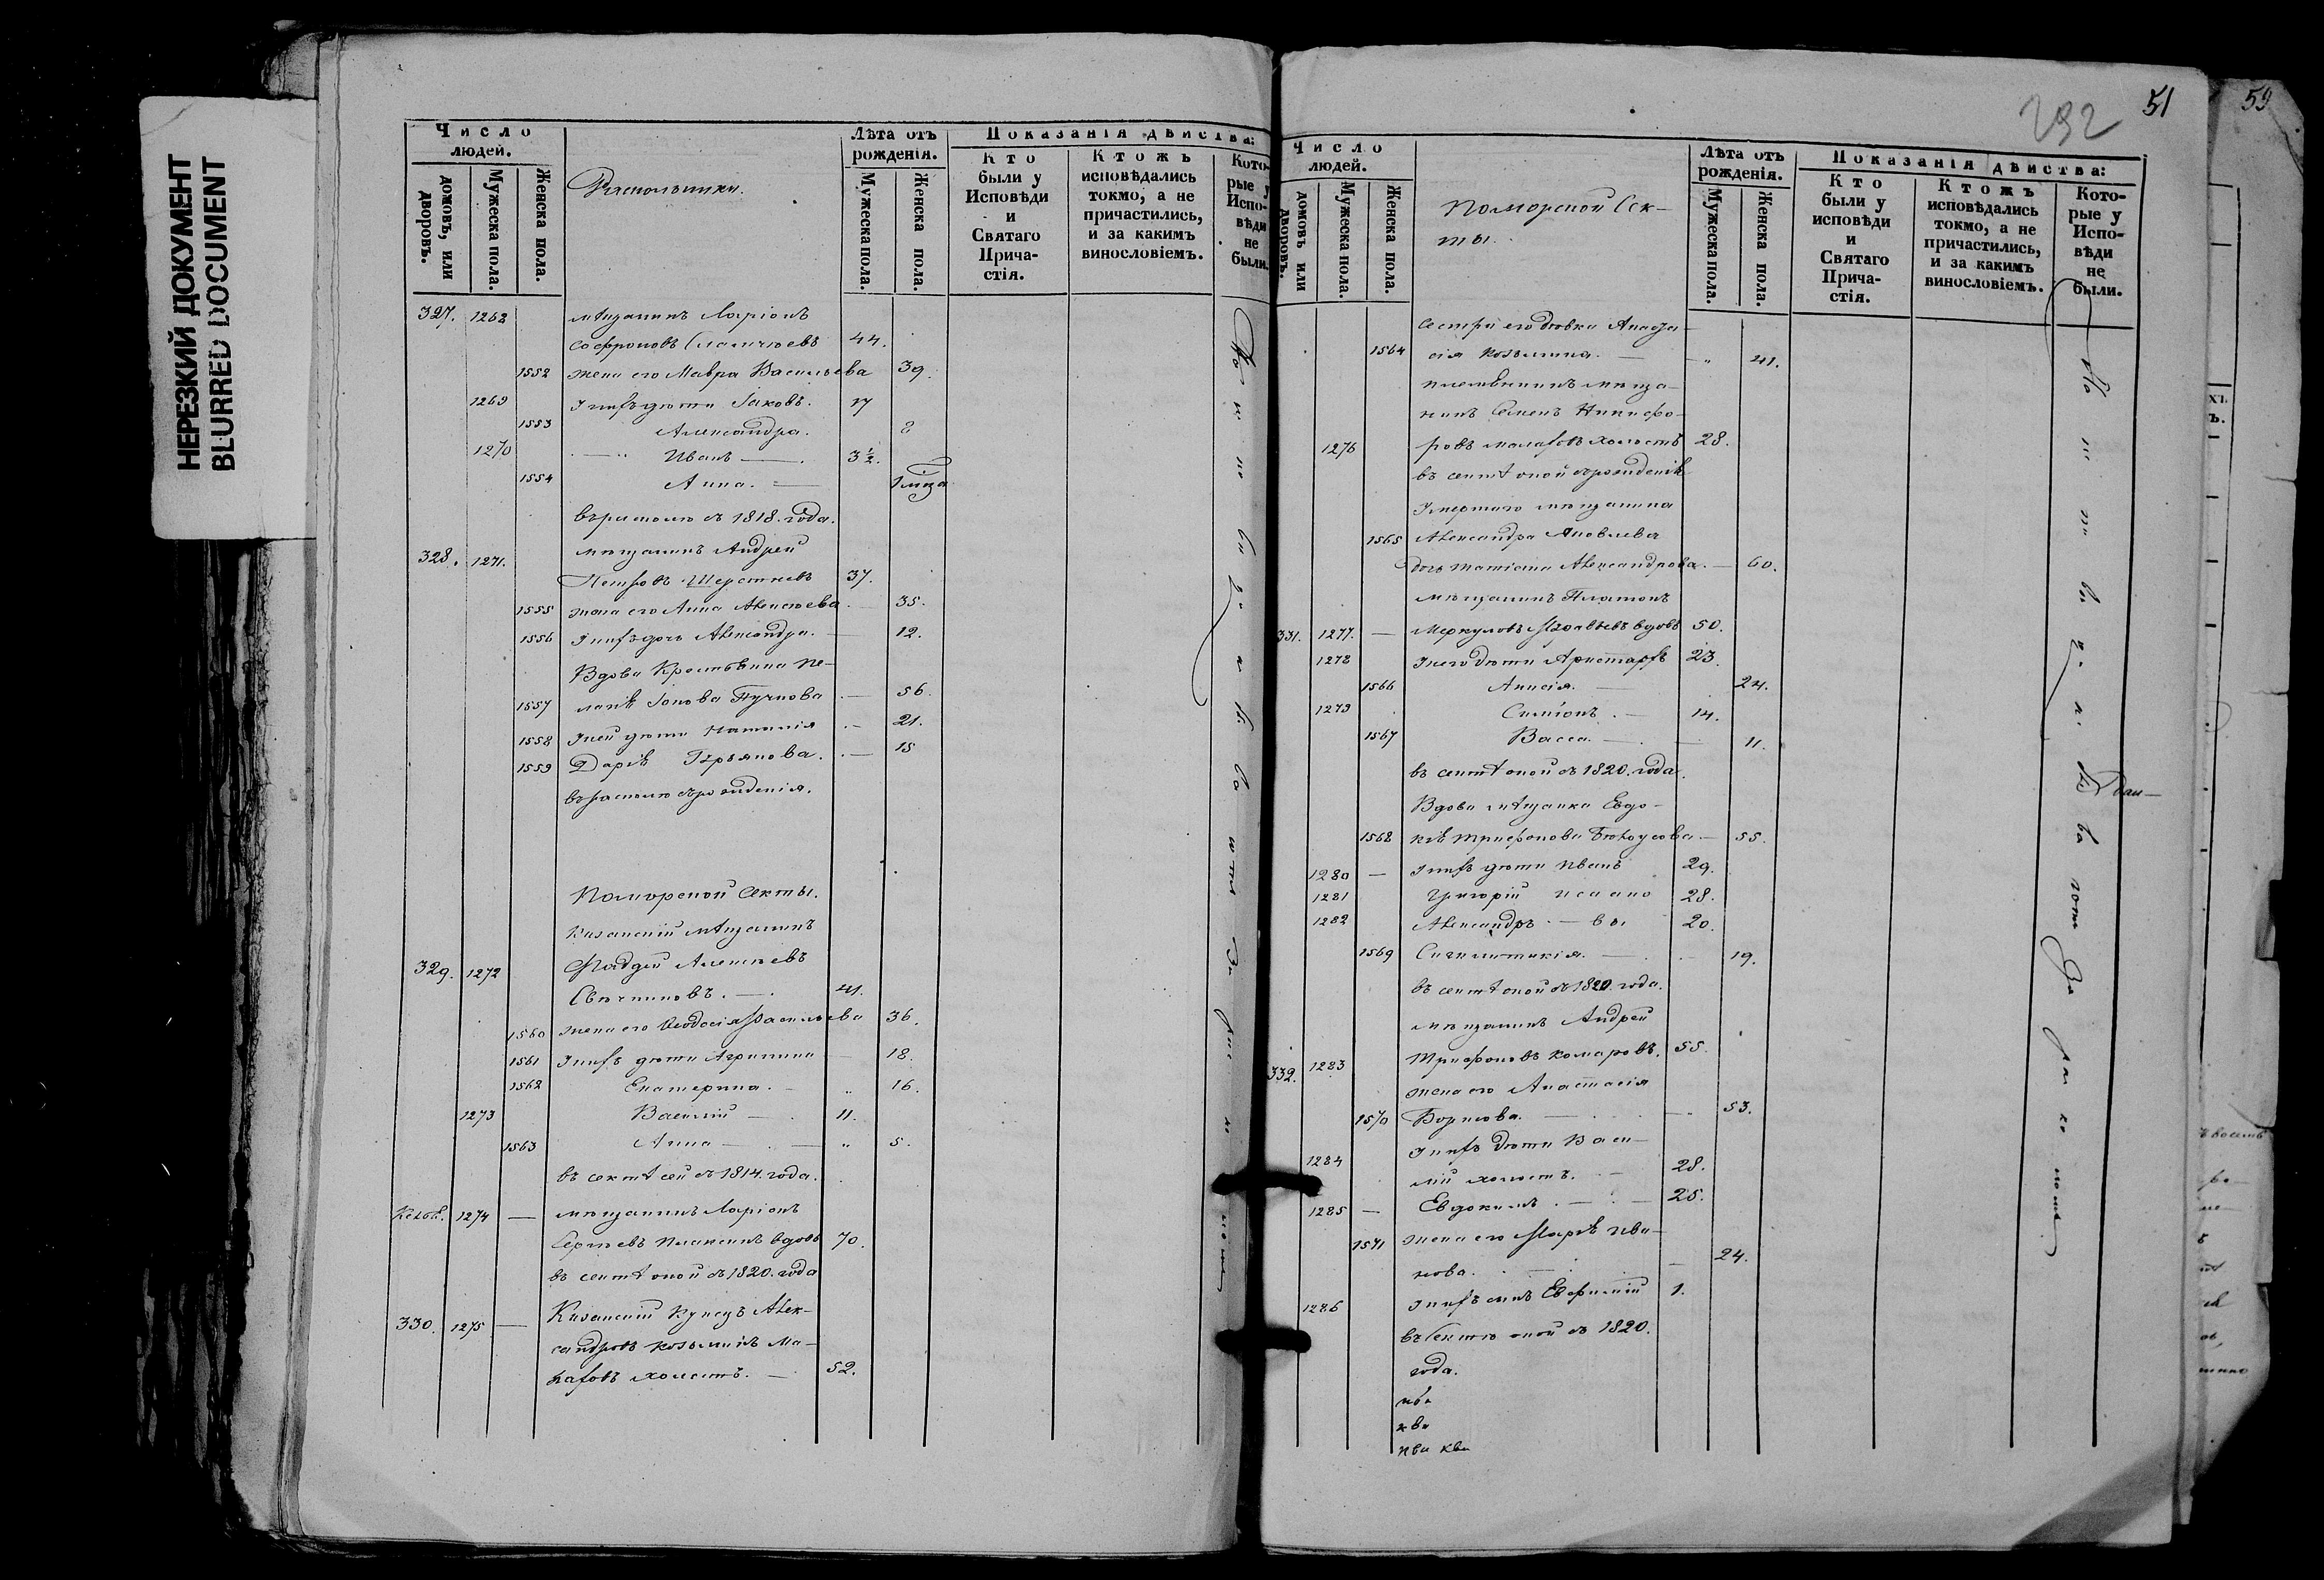 НЕРЕЗКИЙ ДОКУМЕНТ
BLURRED DOCUMENT
Число людей.
домовъ, или дворовъ.
Мужеска пола.
Женска пола.
Раскольники.
Лѣта отъ рожденія.
Мужеска пола.
Женска пола.
Показанія двиства:
Кто были у Исповѣди и Святаго Прича-стія.
Ктожъ исповѣдались токмо, а не причастились, и за какимъ винословіемъ.
Кото-рые у Испо-вѣди не были.
327. 1268 мѣщанинъ Ларіонъ
Софроновъ 44.
1552 жена его Мавра Васильева 39
1269 У нихъ дѣти Іаковъ. 17
1553 Александра. 8
1270 Иванъ 3½.
1554 Анна.
въ расколѣ съ 1818. года.
328. 1271. мѣщанинъ Андрей
Петровъ Шерстневъ 37.
1555 жена его Анна Алексѣева 35.
1556 У нихъ дочь Александра. 12.
Вдова Крестьянка Пе-
1557 лагія Іонова Пучкова 56.
1558 У ней дѣти Наталія 21.
1559 Дарія 15
въ расколѣ съ рожденія.
Поморской Секты.
Казанскій мѣщанинъ
329. 1272 Фаддей Алексѣевъ
Свѣчниковъ. 41.
1560 жена его Ѳеодосія Васильева 36.
1561 У нихъ дѣти Агрипина 18.
1562 Екатерина. 16.
1273 Василій 11.
1563 Анна 5.
въ сектѣ сей съ 1814. года.
1274 мѣщанинъ Ларіонъ
Сергѣевъ вдовъ 70.
въ сектѣ оной съ 1820. года
330. 1275 Казанскій Купецъ Алек-
сандръ Козьминъ Ма-
лафовъ холостъ. 52.
292
51
59
Число людей.
домовъ или дворовъ.
Мужеска пола.
Женска пола.
Поморской Сек-
ты.
Лѣта отъ рожденія.
Мужеска пола.
Женска пола.
Показанія двиства:
Кто были у исповѣди и Святаго Прича-стія.
Ктожъ исповѣдались токмо, а не причастились, и за какимъ винословіемъ.
Кото-рые у Испо-вѣди не были.
Сестра его дѣвка Анаста-
1564 сія Козьмина. 41.
племянникъ мѣща-
нинъ Семенъ Никифо-
1276 ровъ Малафовъ холостъ 28.
въ сектѣ оной съ рожденія
Умершаго мѣщанина
1565 Александра Яковлева
дочь Татіана Александрова. 60.
мѣщанинъ Платонъ
331. 1277. Меркуловъ вдовъ 50.
1278 У него дѣти Аристархъ 23.
1566 Анисія. 24.
1279 Симіонъ 14.
1567 Васса. 11.
въ сектѣ оной съ 1820. года.
Вдова мѣщанка Евдо-
1568 кія Трифонова Бѣлоусова 55.
1280 У нихъ дѣти Иванъ 29.
1281 Григорій Исаако 28.
1282 Александръ вы 20.
1569 Синклитикія. 19.
въ сектѣ оной съ 1820. года.
мѣщанинъ Андрей
332. 1283 Трифоновъ Комаровъ. 55.
жена его Анастасія
1570 Борисова. 53.
У нихъ дѣти Васи-
1284 лій холостъ. 28.
1285 Евдокимъ 25.
1571 жена его Марія Ива-
нова. 24.
1286 У нихъ сынъ Евфимій 1.
въ Сектѣ оной съ 1820.
года.